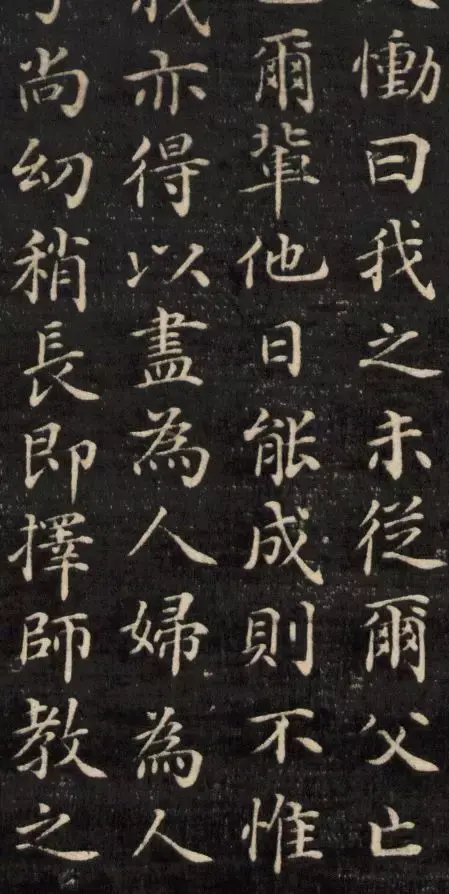 慟曰我之未從爾父亡
爾輩他日能成則不惟
亦得以盡為人婦為人
尚幼稍長即擇師教之